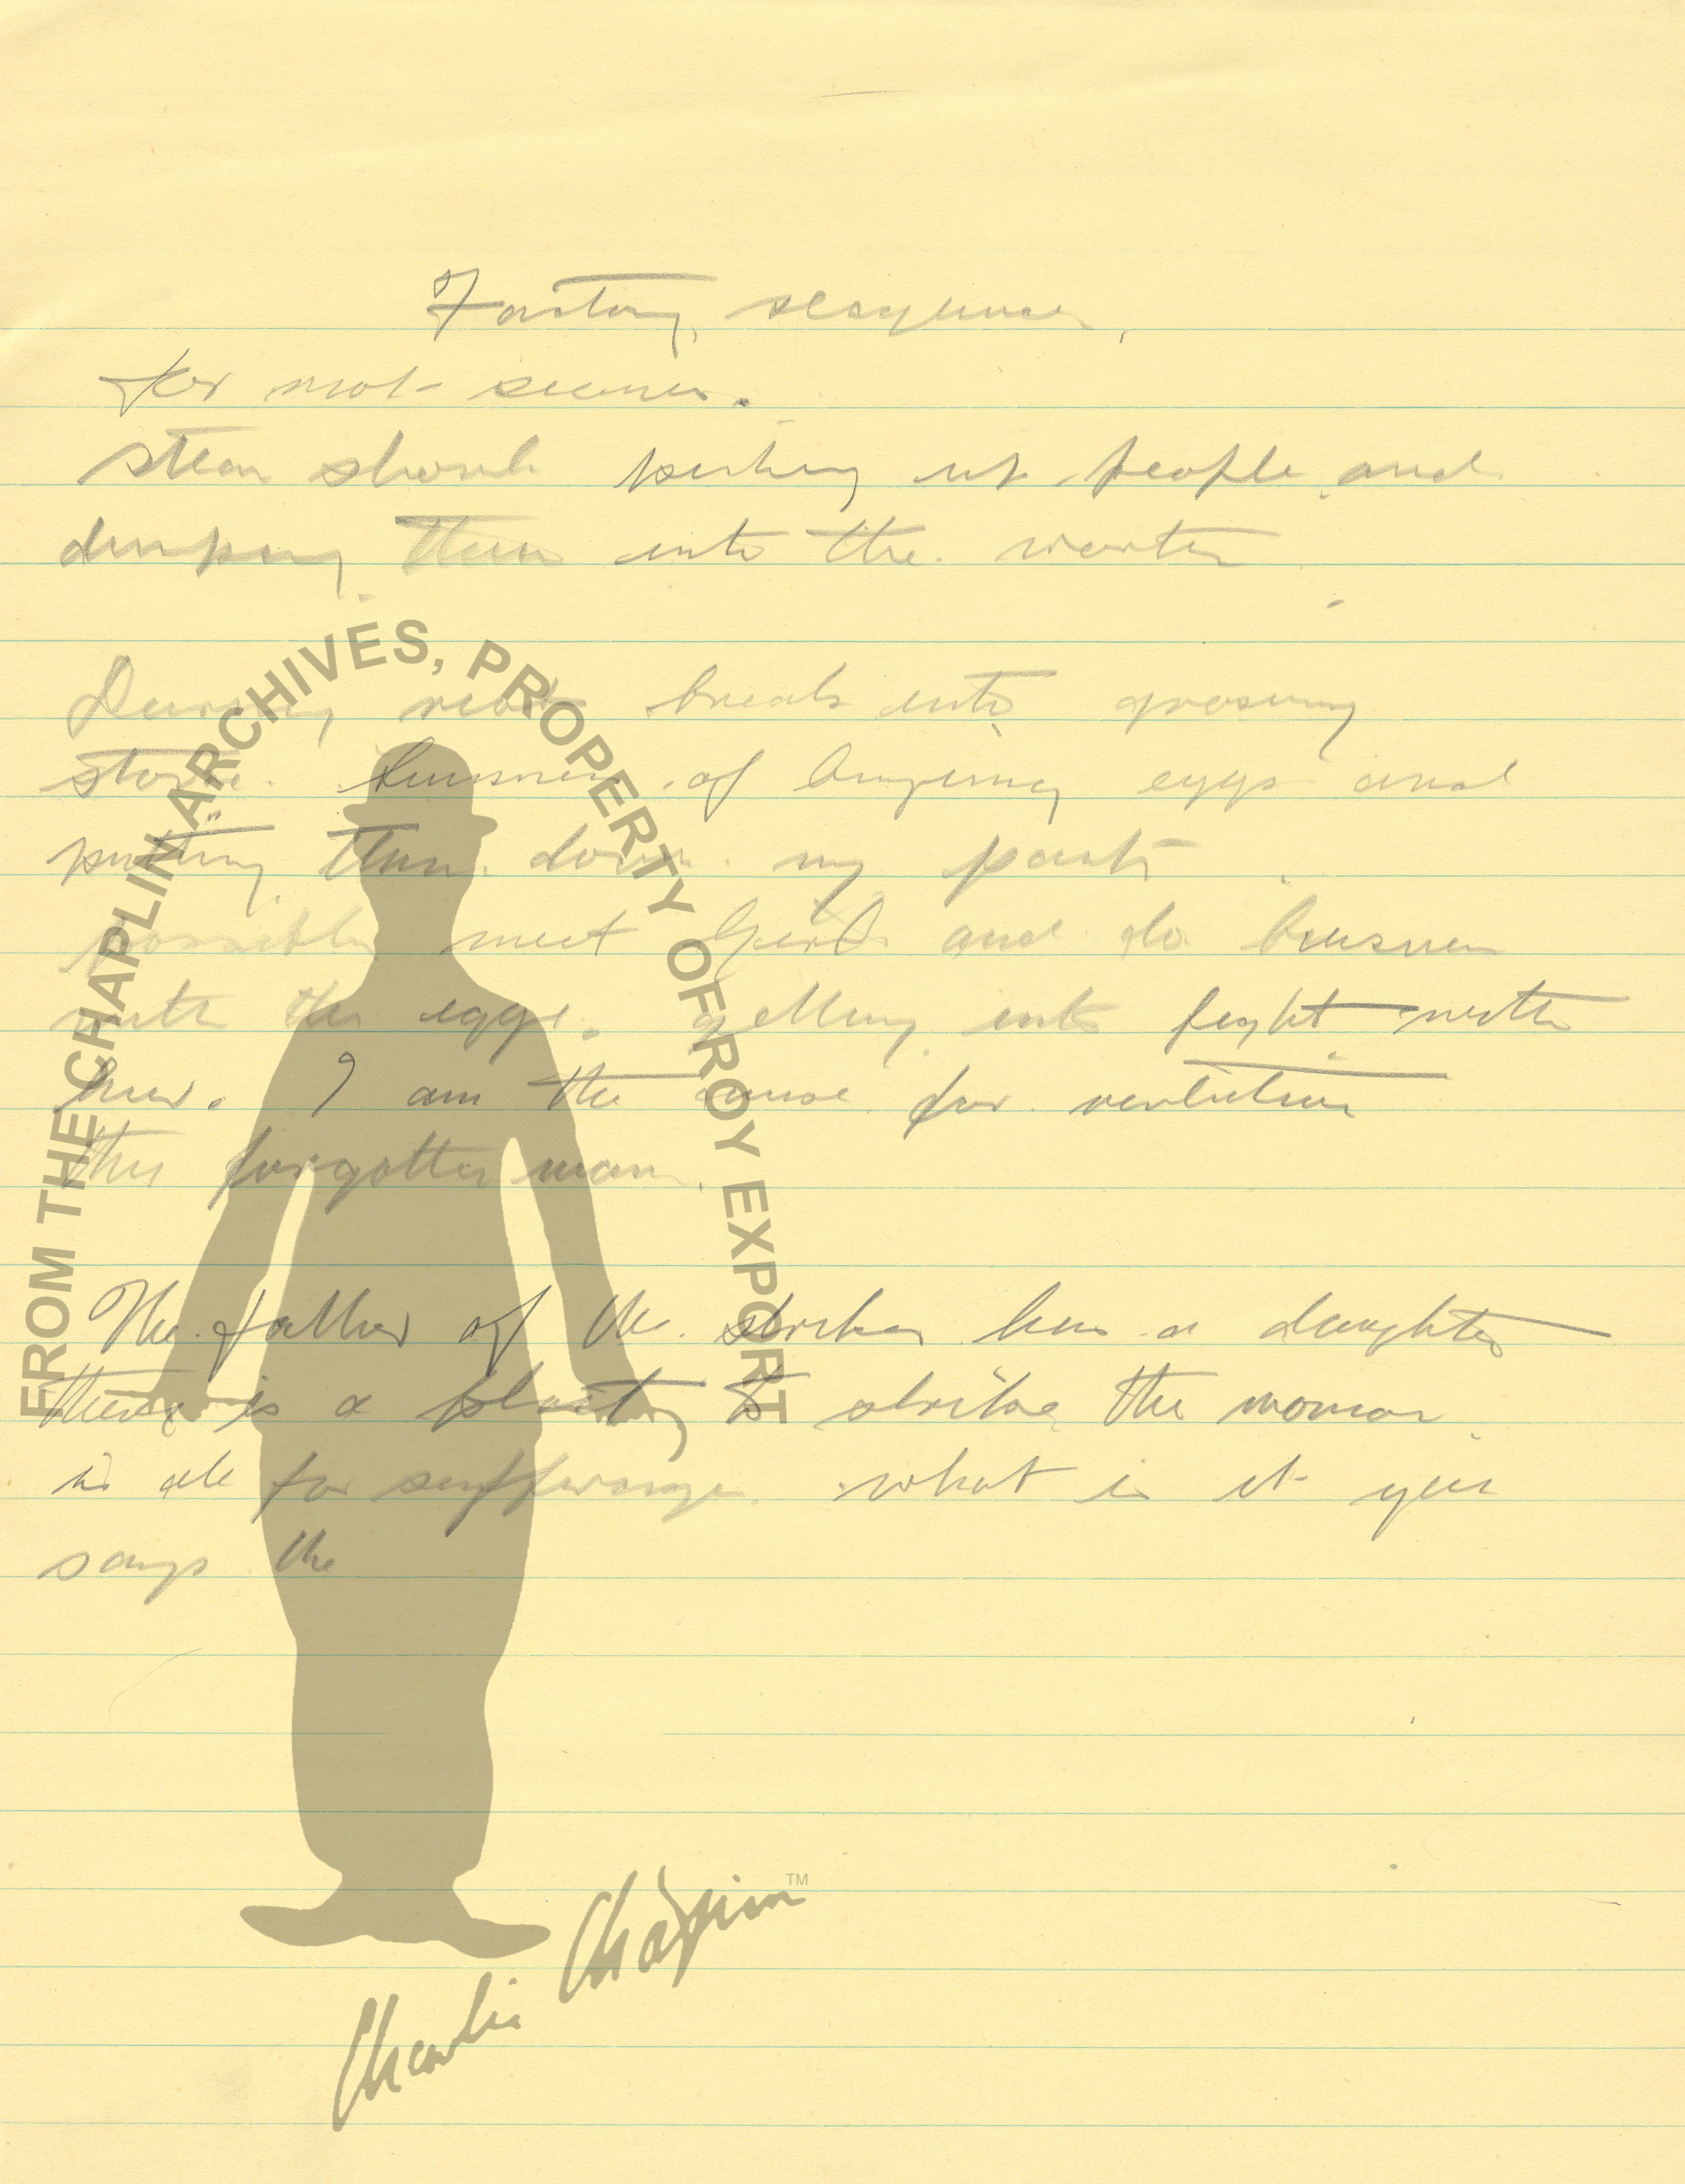 Factory sequence.
for riot scenes.
steam shovel picking up people and
dumping them into the water
During riot breaks into grocery
store. business of buying eggs and
putting them down my pants
possibly meet girl and do business
with the eggs. getting into fight with
her. I am the cause for revolution
the forgotten man.
The father of the striker has a daughter
there is a to strike the woman
is all for suffrage. what is it you
says the
FROM THE CHAPLIN ARCHIVES, PROPERTY OF ROY EXPORT
Charlie Chaplin TM